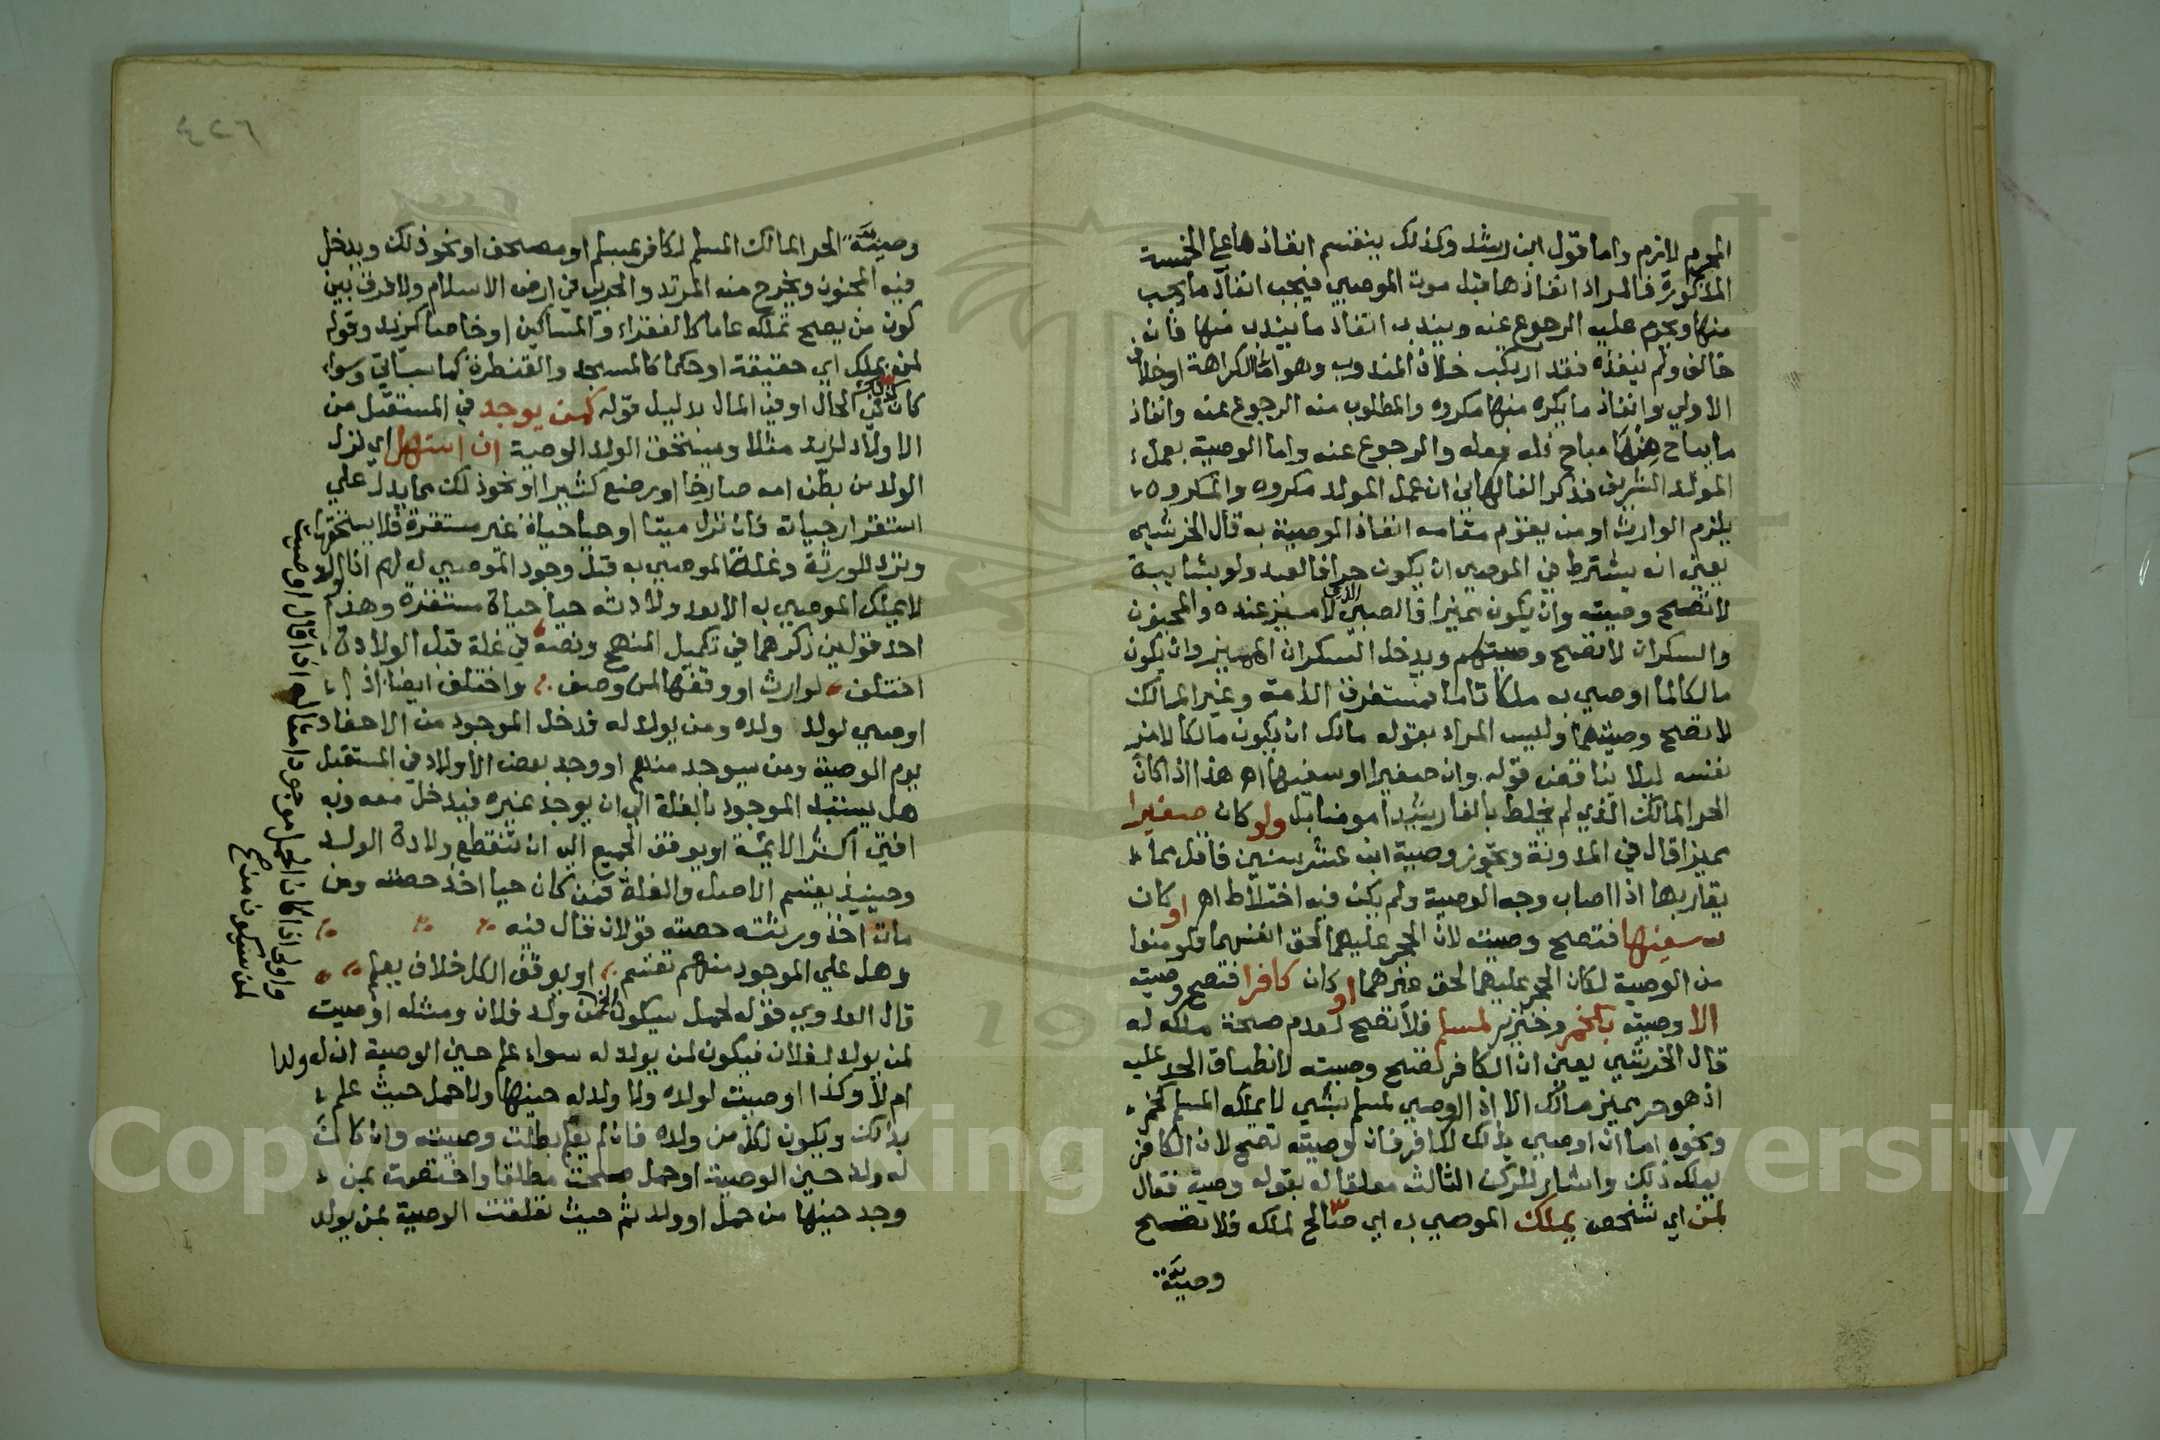 المحرم لازم واما قول ابن رشد وكذلك ينقسم انفاذها علي الخمسة
المذكورة فالمراد انفاذها قبل موت الموصي فيجب انفاذ ما يجب
منها ويحرم عليه الرجوع عنه ويندب انفاذ ما يندب منها فان
خالف ولم ينفذه فقد ارتكب خلاف المندوب وهو اما الكراهة او خلاف
الاولي وانفاذ ما يكره منها مكروه والمطلوب منه الرجوع عنه وانفاذ
ما يباح منها مباح فله فعله والرجوع عنه واما الوصية بعمل
المولد الشريف فذكر الفاكهاني ان عمل المولد مكروه والمكروه
يلزم الوارث او من يقوم مقامه انفاذ الوصية به قال الخرشي
يعني انه يشترط في الموصي ان يكون حرا فالعبد ولو بشايبة
لا تصح وصيته وان يكون مميزا فالصبي الذي لا ميز عنده والمجنون
والسكران لا تصح وصيتهم ويدخل السكران المميز وان يكون
مالكا لما اوصي به ملكا تاما فمستغرق الذمة وغير المالك
لا تصح وصيتهما وليس المراد بقوله مالك ان يكون مالكا لامر
نفسه ليلا يناقض قوله وان صغيرا او سفيها اهـ هذا اذا كان
الحر المالك الذي لم يخلط بالغا رشيدا مو منا بل ولو كان صغيرا
مميزا قال في المدونة وتجوز وصية ابن عشر سنين فاقل مما
يقاربها اذا اصاب وجه الوصية ولم يكن فيه اختلاط اهـ او كان
سفيها فتصح وصيته لان الحجر عليهما لحق انفسهما فلو منعوا
من الوصية لكان الحجر عليهما لحق غيرهما او كان كافرا فتصح وصيته
الا وصيته بخمر وخنزير لمسلم فلا تصح لعدم صحة ملكه له
قال الخرشي يعني ان الكافر تصح وصيته لانطباق الحد عليه
اذ هو حر مميز مالك الا اذ اوصي لمسلم بشي لا يملكه المسلم كخمر
ونحوه اما ان اوصي بذلك لكافر فان وصيته تصح لان الكافر
يملك ذلك واشار للركن الثالث معلقا له بقوله وصية فقال
لمن اي شخص يملك الموصي به اي صالح لملكه فلا تصح
وصية
٤٢٦
وصية الحر المالك المسلم لكافر بمسلم او مصحف او نحو ذلك ويدخل
فيه المجنون ويخرج منه المرتد والحربي في ارض الاسلام ولا فرق بين
كون من يصح تملكه عاما كالفقراء والمساكين او خاصا كزيد وقوله
لمن يملك اي حقيقة او حكما كالمسجد والقنطرة كما سياتي وسواء
كان ذلك في الحال او في المال بدليل قوله كمن يوجد في المستقبل من
الاولاد لزيد مثلا ويستحق الولد الوصية ان استهل اي نزل
الولد من بطن امه صارخا او رضع كثيرا او نحو ذلك مما يدل علي
استقرار حياته فان نزل ميتا او حيا حياة غير مستقرة فلا يستحقها
وترد للورثة وغلة الموصي به قبل وجود الموصي له لهم اذ الولد
لا يملك الموصي به الا بعد ولادته حيا حياة مستقرة وهذا
احد قولين ذكرهما في تكميل المنهج ونصه في غلة قبل الولادة
اختلف لوارث او وقفها لمن وصف واختلف ايضا اذ
اوصي لولد ولده ومن يولد له فدخل الموجود من الاحفاد
يوم الوصية ومن سيوجد منهم او وجد بعض الاولاد في المستقبل
هل يستبد الموجود بالغلة الي ان يوجد غيره فيدخل معه وبه
افتي اكثر الايمة او يوقف الجميع الي ان تنقطع ولادة الولد
وحينيذ يقسم الاصل والغلة فمن كان حيا اخذ حصته ومن
مات اخذ ورثته حصته قولان قال فيه
وهل علي الموجود منهم تقسم او يوقف الكل خلاف يعلم
قال العدوي قوله لحمل سيكون لخ من ولد فلان ومثله اوصيت
لمن يولد لفلان فيكون لمن يولد له سواء علم حين الوصية ان له ولدا
ام لا وكذا اوصيت لولده ولا ولد له حينها ولا حمل حيث علم
بذلك ويكون لكل من ولده فان لم يعلم بطلت وصيته وان كانت
له ولد حين الوصية او حمل صحت مطلقا واختصت بمن
وجد حينها من حمل او ولد ثم حيث تعلقت الوصية بمن يولد